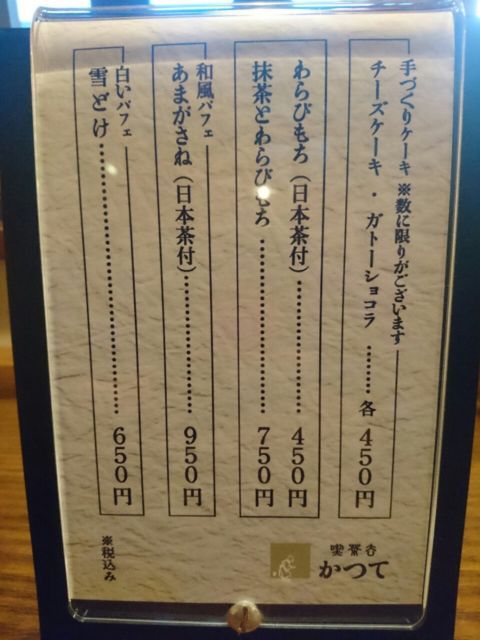 手づくりケーキ ※数に限りがございます
チーズケーキ・ガトーショコラ ……… 各 450円
わらびもち(日本茶付)………………… 450円
抹茶とわらびもち ………………………… 750円
和風パフェ
あまがさね(日本茶付)………………… 950円
白いパフェ
雪どけ ……………………………………… 650円
※税込み
喫茶去
かつて